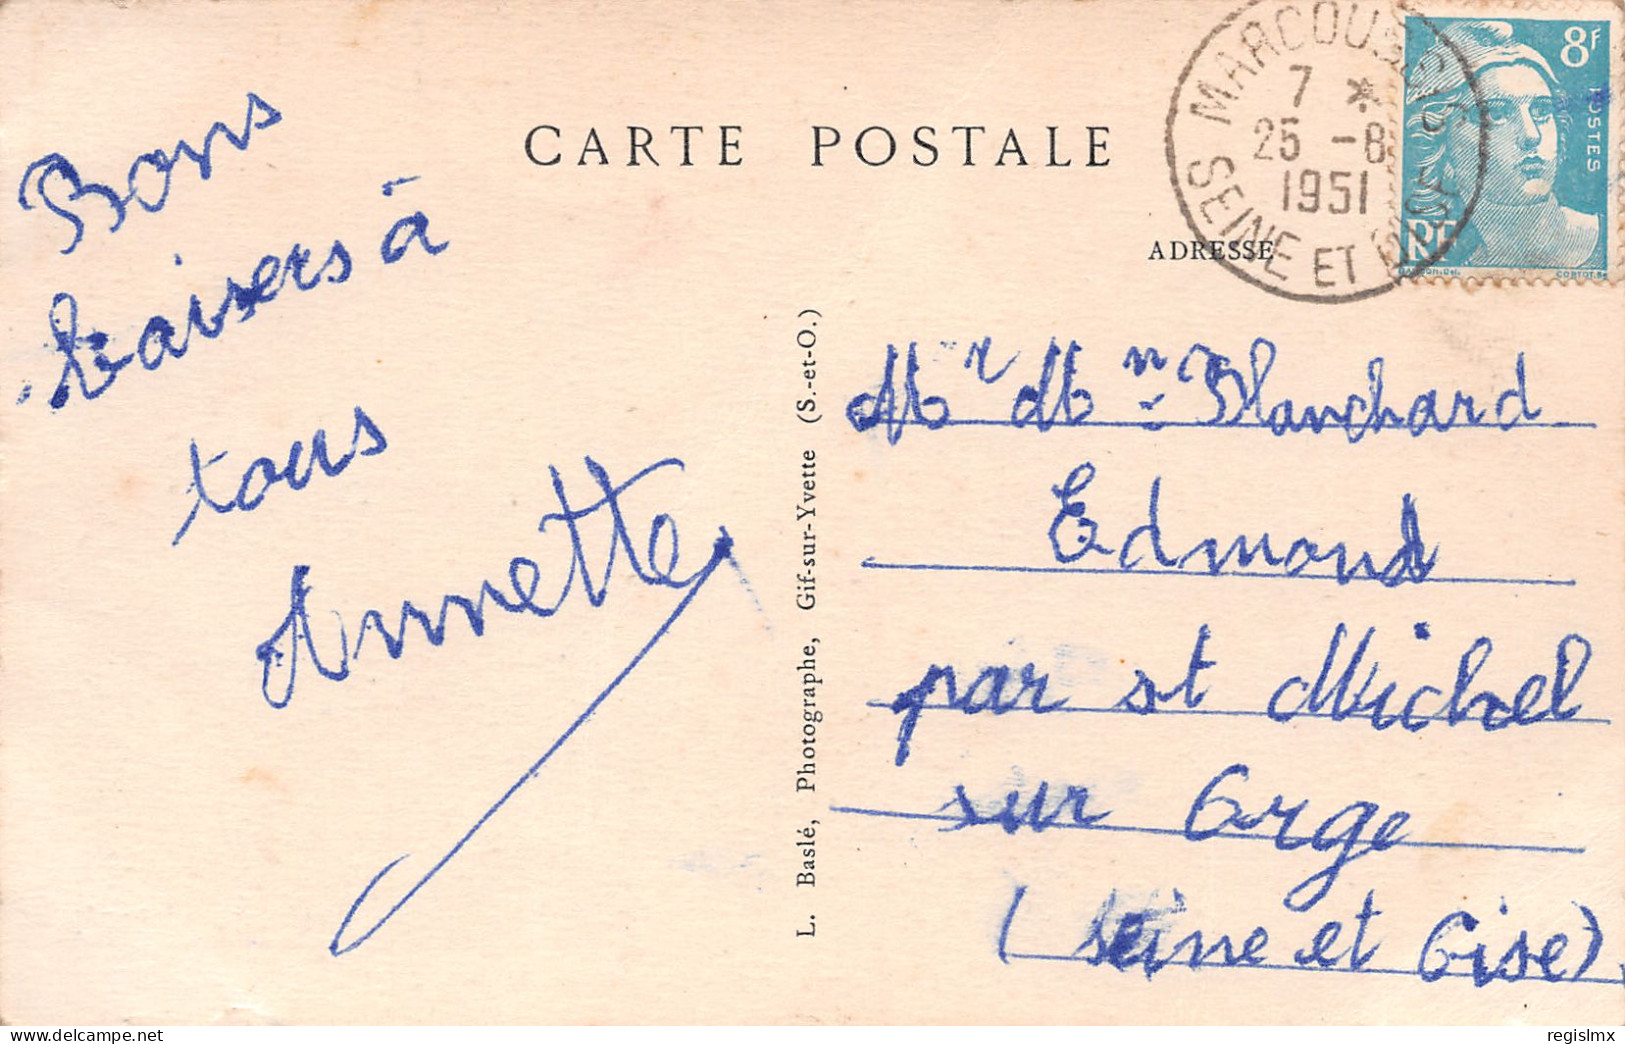 CARTE POSTALE
MARCOUSSIS
7 *
25 -8
1951
SEINE ET OISE
8F
POSTES
RF
ADRESSE
Bons
baisers à
tous
Annette
L. Baslé, Photographe, Gif-sur-Yvette (S.-et-O.)
Mr Mme Blanchard
Edmond
par st Michel
sur Orge
(seine et Oise)
www.delcampe.net
regislmx